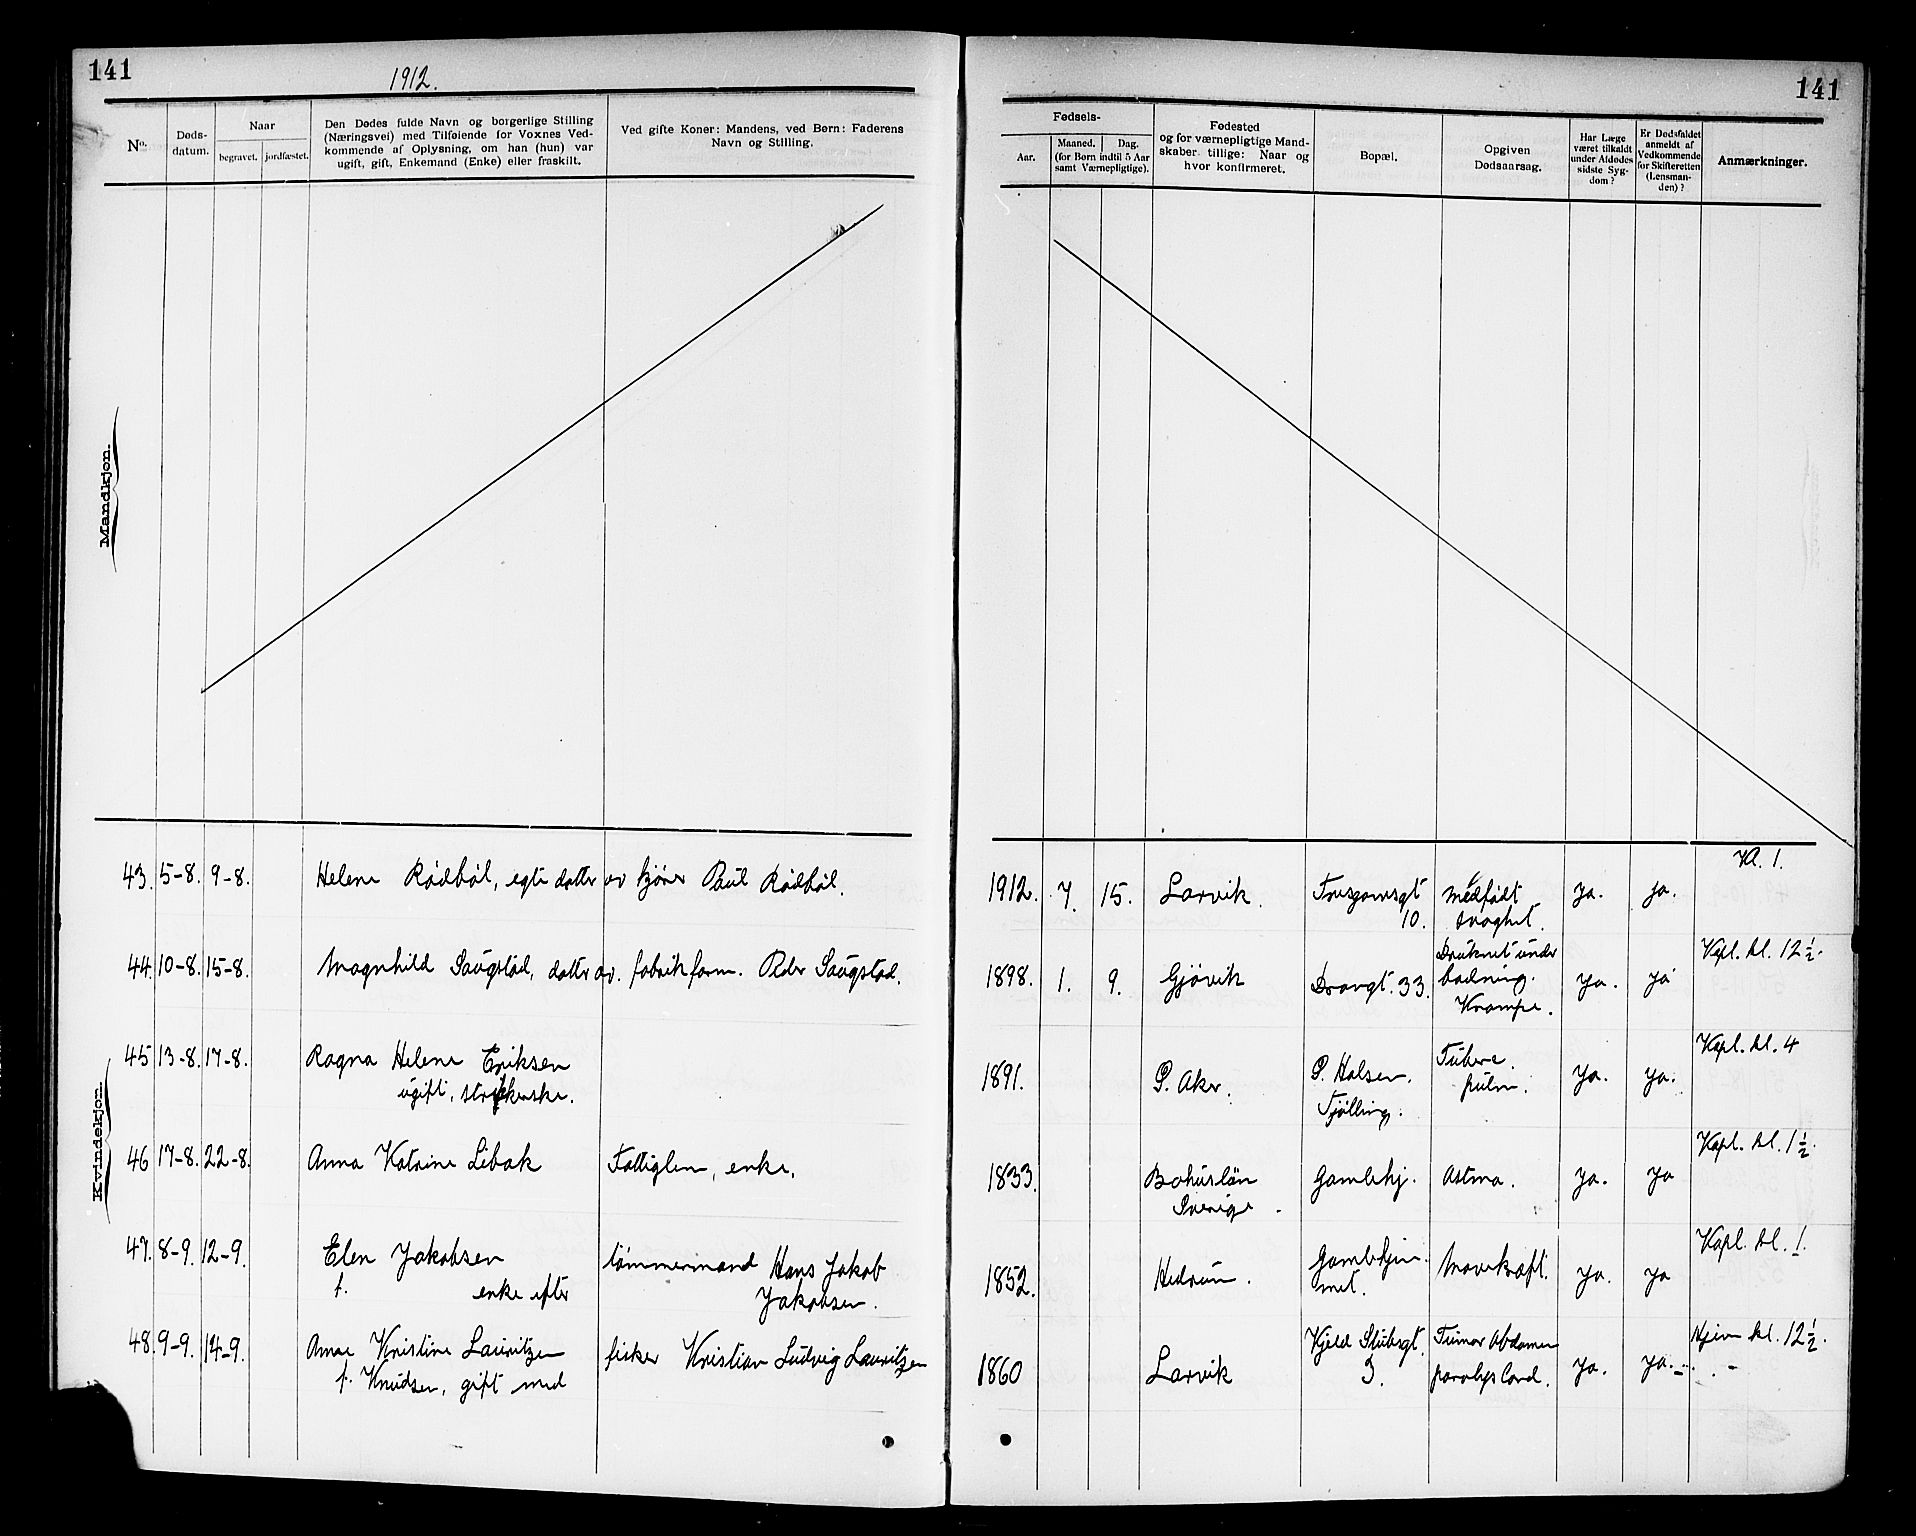 141
1912.
No.
Døds-
datum.
Naar
begravet.
jordfæstet.
Den Dødes fulde Navn og borgerlige Stilling
(Næringsvei) med Tilføiende for Voxnes Ved-
kommende af Oplysning, om han (hun) var
ugift, gift, Enkemand (Enke) eller fraskilt.
Ved gifte Koner: Mandens, ved Børn: Faderens
Navn og Stilling.
Mandkjøn.
Kvindekjøn.
43. 5-8. 9-8. Helene Rødbøl, egte datter av kjører Paul Rødbøl.
44. 10-8. 15-8. Magnhild Saugstad, datter av. fabrikform. Peder Saugstad.
45 13-8. 17-8. Ragna Helene Eriksen
ugift, strykerske.
46 17-8. 22-8. Anna Katrine Libak Fattiglem, enke.
47. 8-9. 12-9. Elen Jakobsen tömmermand Hans Jakob
f. enke efter Jakobsen.
48. 9-9. 14-9. Anne Kristine Lauritzen fisker Kristian Ludvig Lauritzen
f. Knudsen, gift med
141
Fødsels-
Aar.
Maaned.
Dag.
(for Børn indtil 5 Aar
samt Værnepligtige).
Fødested
og for værnepligtige Mand-
skaber tillige: Naar og
hvor konfirmeret.
Bopæl.
Opgiven
Dødsaarsag.
Har Læge
været tilkaldt
under Afdødes
sidste Syg-
dom?
Er Dødsfaldet
anmeldt af
Vedkommende
for Skifteretten
(Lensman-
den)?
Anmærkninger.
Kl. 1.
1912. 7. 15. Larvik. medfödt ja. ja.
10. svaghet.
Kapl. kl. 12 1/2.
1898. 1. 9. Gjövik Drangt. 33. Druknet under
badning. ja. ja
Krampe.
Kapl. kl. 4
1891. P. Aker. P. Halsen. Tuberc. ja. ja.
Tjölling. pulm.
Kapl. kl. 1 1/2.
1833. Bohuslän Gamlehj. Astma. ja. ja
Sverige.
Kapl. kl. 1.
1852. Hedrum. Gamlehjem- Mavekræft. ja. ja
met.
Hjem kl. 12 1/2.
1860 Larvik Kjeld Stubsgt. Tumor Abdomen ja. ja.
3. paralys Cord.